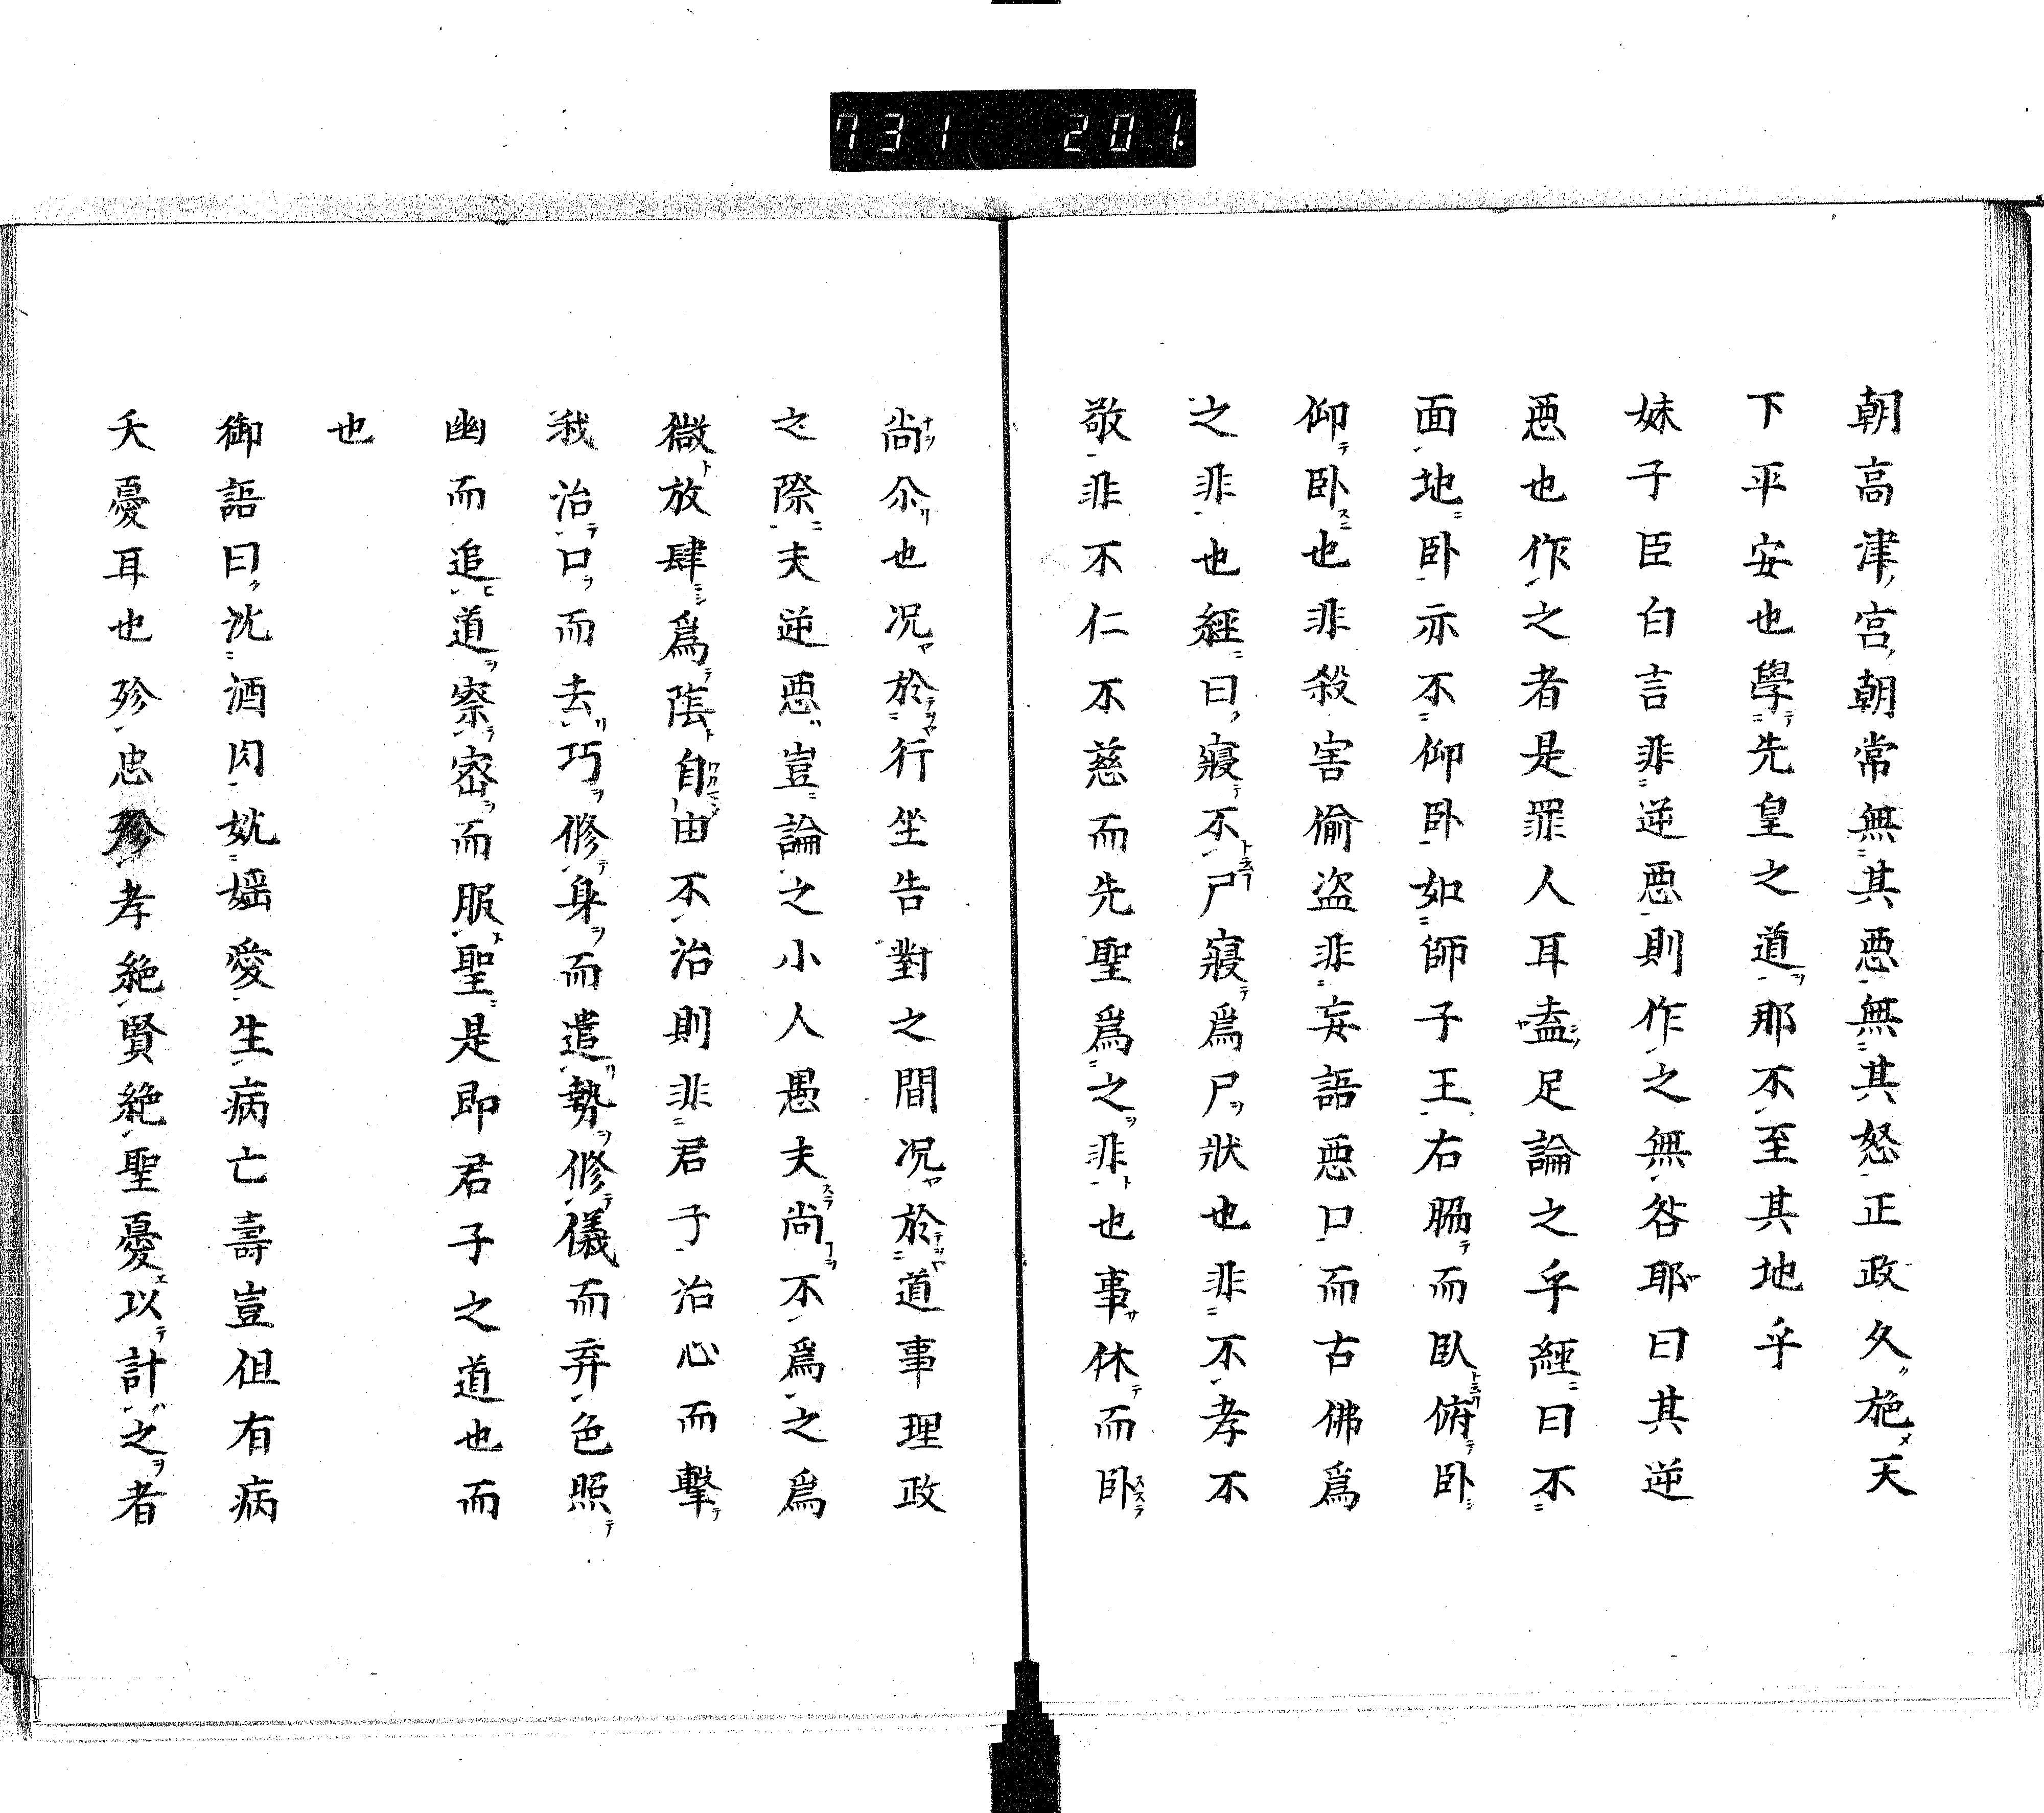 731 201.
朝高津宮朝常無其悪無其怒正政久施天
下平安也學先皇之道那不至其地乎
妹子臣白言非逆悪則作之無咎耶曰其逆
悪也作之者是罪人耳盍足論之乎經曰不
面地卧亦不仰卧如師子王右脇而臥俯卧
仰卧也非殺害偷盗非妄語悪口而古佛為
之非也經曰寢不尸寢爲尸狀也非不孝不
敬非不仁不慈而先聖爲之非也事休而卧
尚尒也况於行坐告對之間况於道事理政
之際夫逆悪豈論之小人愚夫尚不爲之爲
微放肆爲陰自由不治則非君子治心而擊
我治口而去巧修身而遣勢修儀而弃色照
幽而追道察密而服聖是即君子之道也而
也
御語曰沈酒肉妷婬愛生病亡壽豈但有病
夭憂耳也殄忠殄孝絶賢絶聖憂以計之者